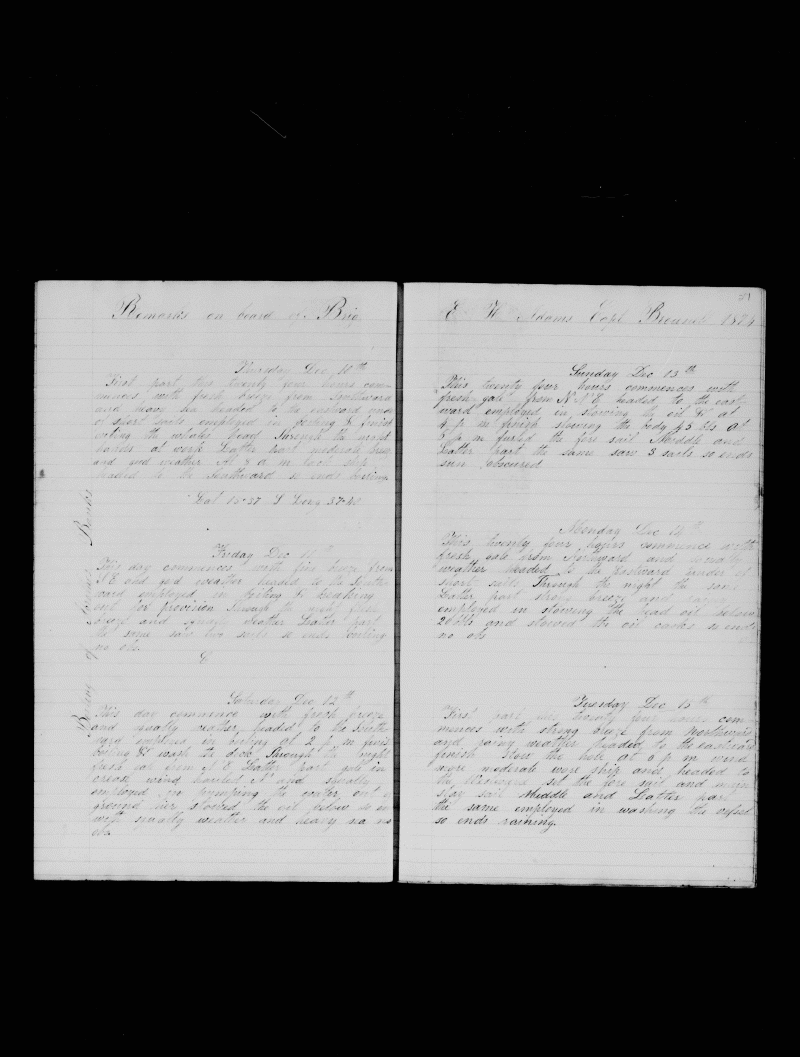 Remarks on board of Brig
Thursday Dec 10th
First part this twenty four hours com-
mences with fresh breeze from Southward
and heavy sea headed to the eastward under
of short sails employed in
cutting the whales head Through the night
hands at work Latter part moderate breeze
and good weather At 3 a m
headed to the Southward so ends boiling
Lat 15-37 S Long 37-40
Friday Dec 11th
This day commences with fine breeze from
N E and good weather headed to the South-
ward employed in boiling & breaking
out for provision Through the night fresh
and squally weather Latter part
the same saw two sails so ends boiling
no obs.
Boiling of Brooks
Saturday Dec 12th
This day commence with fresh breeze
and squally weather headed to the South-
ward employed in boiling at 2 p m finish
boiling & wash the deck Through the night
fresh gale from N E Latter part gale in-
crease wind hauled N and squally
employed in pumping the water out of
ground tier stowed the oil below so ends
with squally weather and heavy
obs.
21
E W Adams Capt 1874
Sunday Dec 13th
This twenty four hours commences with
fresh gale from N N E headed to the east-
ward employed in stowing the oil & at
4 p m finish stowing the body 45 bls at
6 p m furled the fore sail Middle and
Latter part the same saw 3 sails so ends
sun obscured
Monday Dec 14th
This twenty four hours commence with
fresh gale from Northward and
weather headed to the Eastward under of
short sails Through the night the same
Latter part strong breeze and rainy
employed in stowing the head oil below
and stowed the oil casks so ends
no obs
Tuesday Dec 15th
First part this twenty four hours com-
mences with strong breeze from Northward
and rainy weather headed to the eastward
finish stow the hole at 6 p m wind
more moderate wore ship and headed to
the Westward set the fore sail and main
stay sail Middle and Latter part
the same employed in washing the
so ends raining.